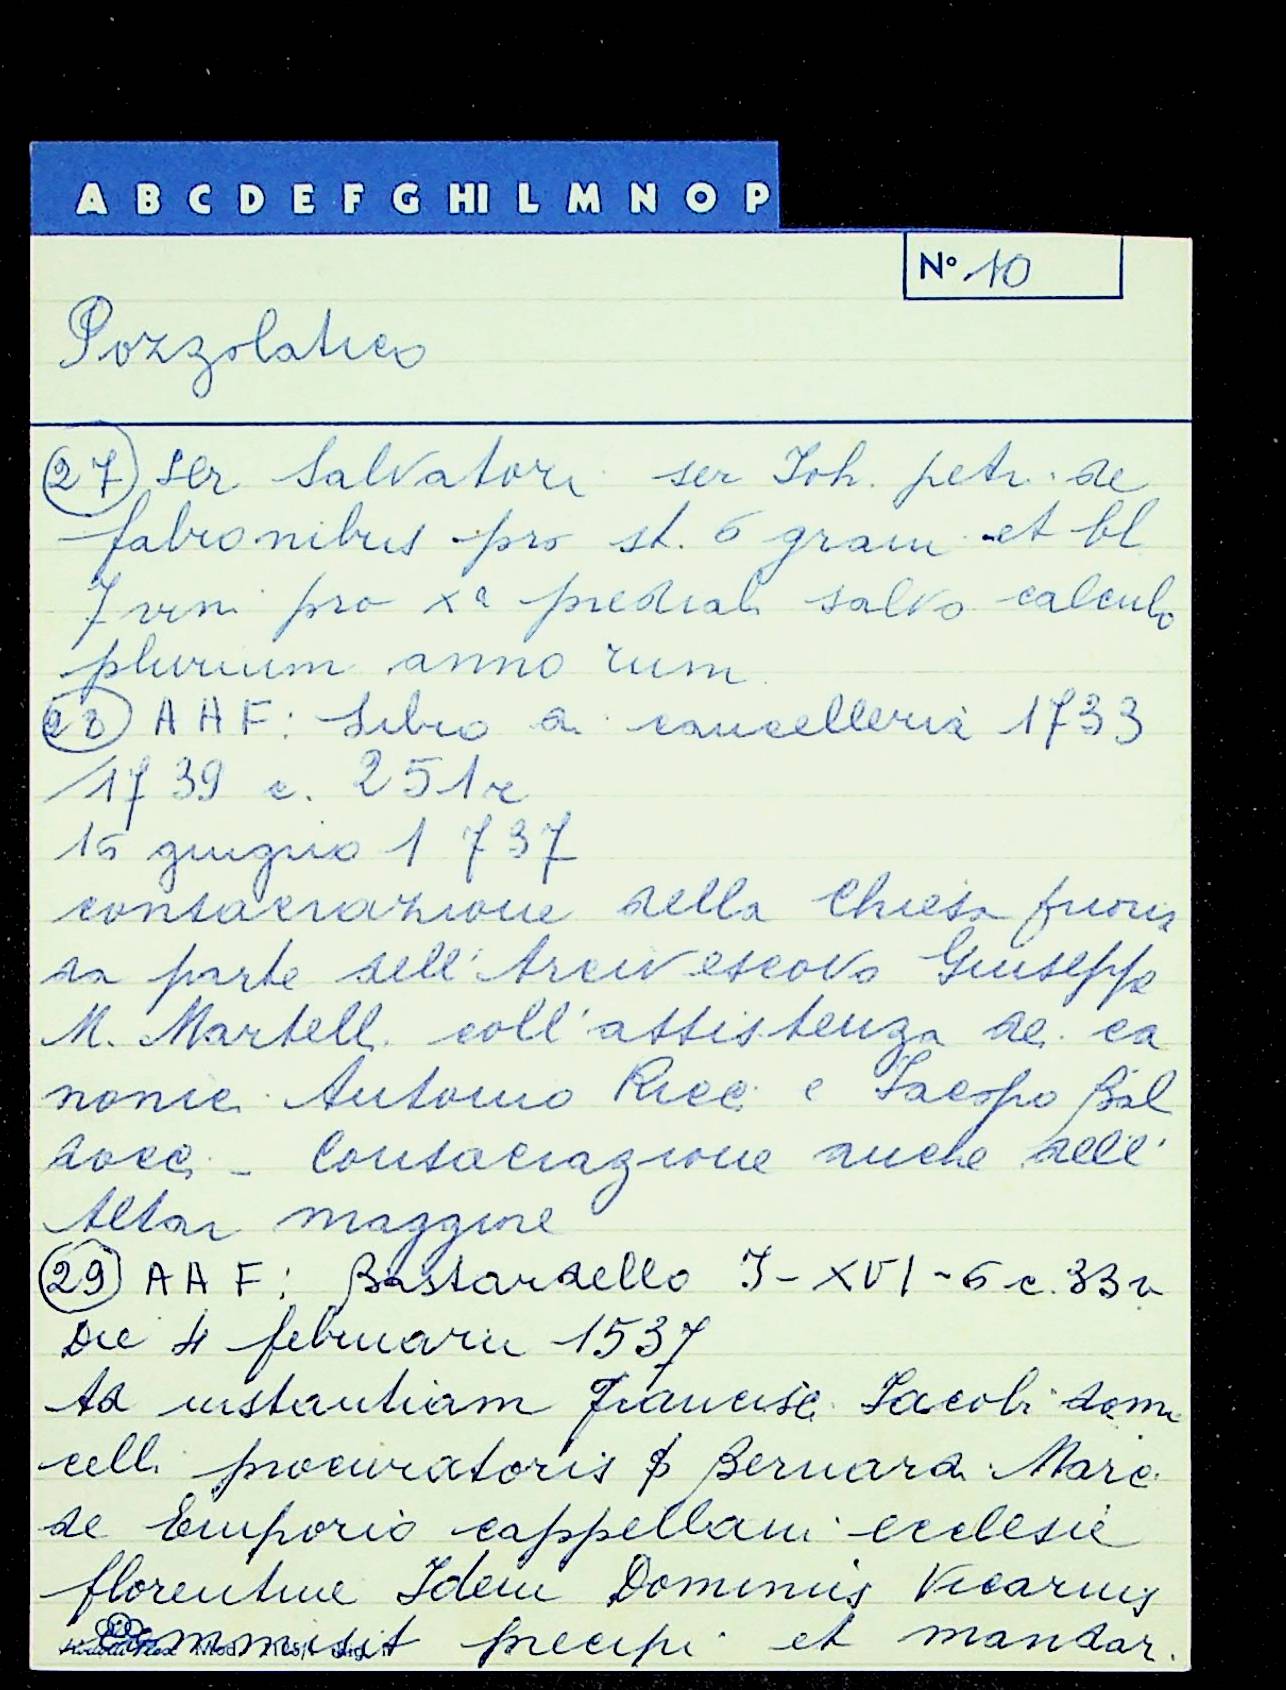 A B C D E F G HI L M N O P
N° 10
Pozzolatico
27 ser Salvatori ser Joh. petri de
fabronibus pro st. 6 grani et bl
7 vini pro xa prediali salvo calculo
plurium annorum
28 AAF: Libro di cancelleria 1733
1739 c. 251r
16 giugno 1737
consacrazione della Chiesa
da parte dell'Arcivescovo Giuseppe
M. Martelli coll'assistenza dei ca
nonici Antonio Ricci e Jacopo Bal
docci - Consacrazione anche dell'
Altar maggiore
29 AAF: Bastardello I-XVI-6 c. 33v
Die 4 februarii 1537
Ad instantiam Francisci Jacobi domi
celli procuratoris Bernardi Marci
de Emporio cappellani ecclesie
florentine Idem Dominus Vicarius
commisit precipi et mandari